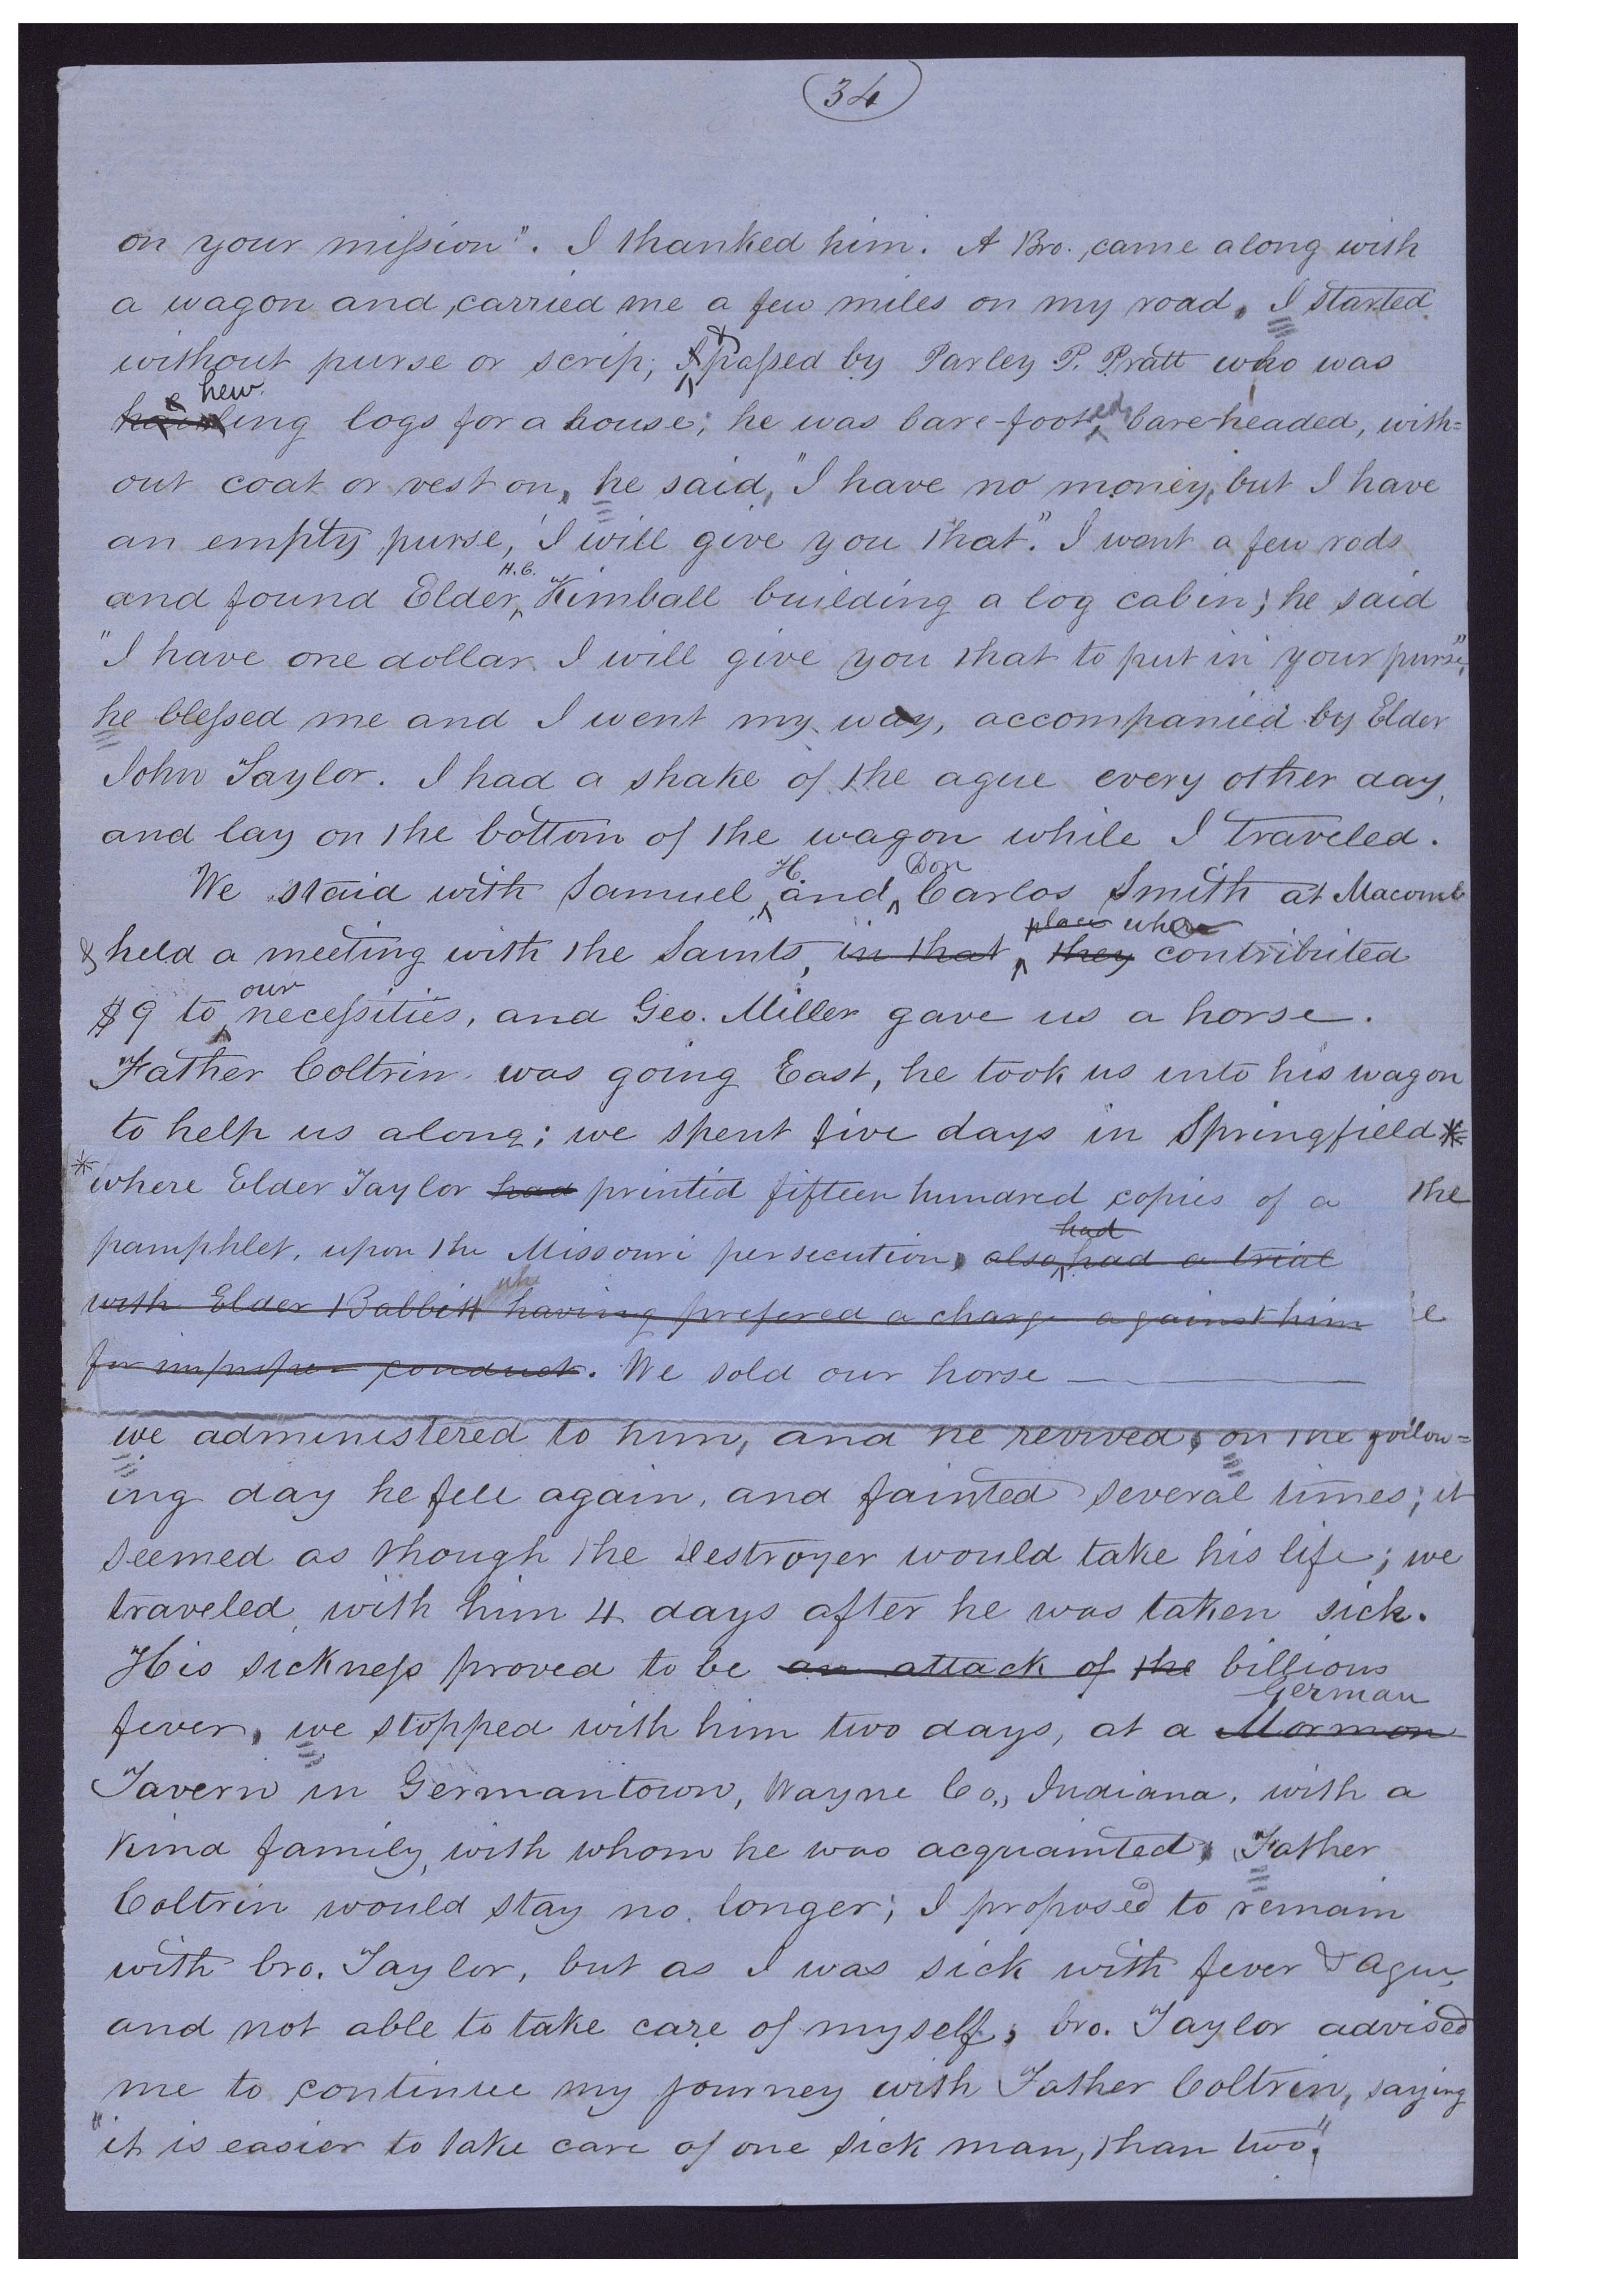 34
on your mission". I thanked him. A Bro. came along with
a wagon and carried me a few miles on my road, I started
without purse or scrip; I & passed by Parley P. Pratt who was
hew
hauling logs for a house; he was bare-footed, bareheaded, with=
out coat or vest on, he said, "I have no money, but I have
an empty purse, I will give you that." I went a few rods
H.C.
and found Elder Kimball building a log cabin; he said
"I have one dollar I will give you that to put in your purse",
he blessed me and I went my way, accompanied by Elder
John Taylor. I had a shake of the ague every other day,
and lay on the bottom of the wagon while I traveled.
H. Don
We staid with Samuel and Carlos Smith at Macomb
place where
& held a meeting with the Saints, in that they contributed
our
$9 to necessities, and Geo. Miller gave us a horse.
Father Coltrin was going East, he took us into his wagon
to help us along; we spent five days in Springfield *
* where Elder Taylor had printed fifteen hundred copies of a the
had
pamphlet, upon the Missouri persecution, also had a trial
who
with Elder Babbitt having prefered a charge against him e
for improper conduct. We sold our horse
we administered to him, and he revived, on the follow=
ing day he fell again, and fainted several times; it
seemed as though the destroyer would take his life; we
traveled with him 4 days after he was taken sick.
His sickness proved to be an attack of the billious
German
fever, we stopped with him two days, at a Mormon
Tavern in Germantown, Wayne Co., Indiana, with a
kind family, with whom he was acquainted, Father
Coltrin would stay no longer; I proposed to remain
with bro. Taylor, but as I was sick with fever & ague,
and not able to take care of myself, bro. Taylor advised
me to continue my journey with Father Coltrin, saying
"it is easier to take care of one sick man, than two."